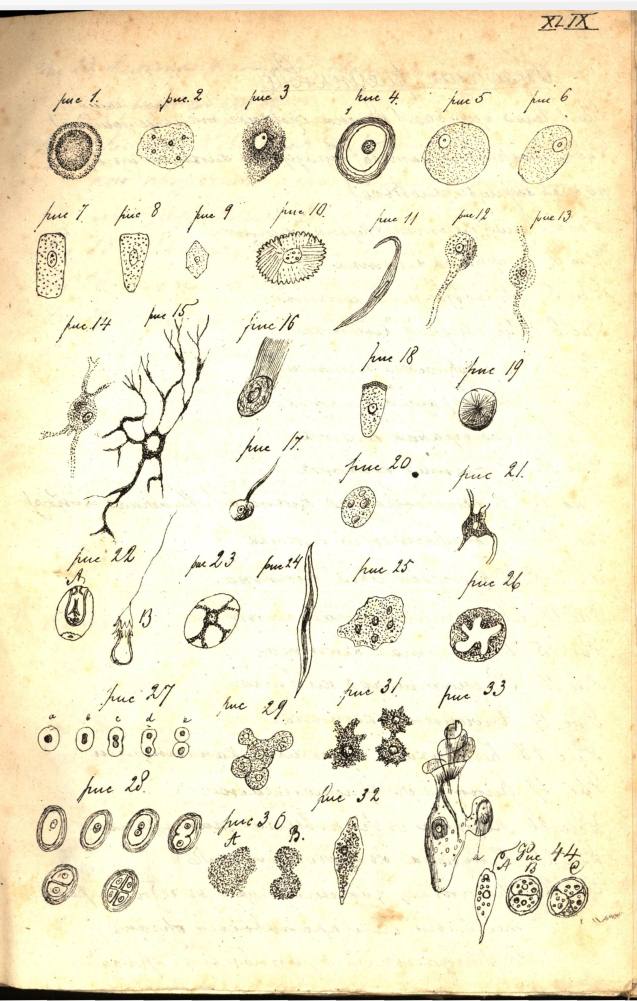 XLIX
рис 1. рис. 2 рис 3 рис 4. рис 5 рис 6
рис 7 рис 8 рис 9 рис. 10. рис 11 рис 12 рис 13
рис 14 рис 15 рис 16
рис 18 рис 19
рис 17. рис 20. рис 21.
рис 22 рис 23 рис 24 рис 25 рис 26
А В
рис 27 рис 29 рис 31 рис 33
а b c d e
рис 28. рис 30 рис 32
А В.
а Рис 44
А В С